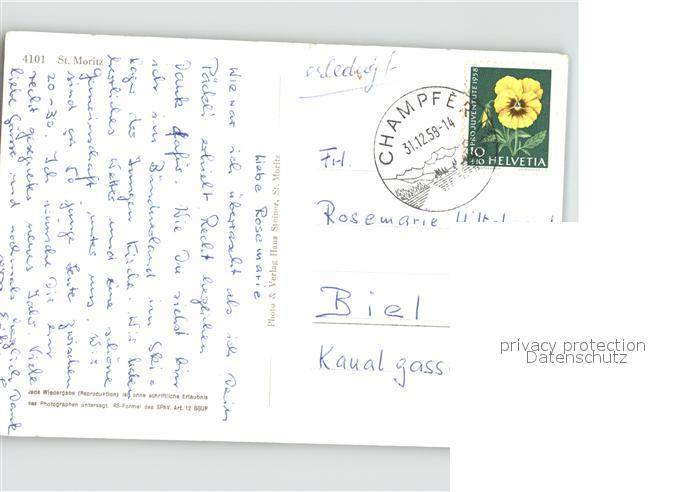 4101 St. Moritz
erledigt
Liebe Rosemarie
Wie war ich überrascht als ich Dein
Päckli erhielt. Recht herzlichen
Dank dafür. Wie Du siehst bin
ich im Bündnerland im Ski-
lager der Jungen Kirche. Wir haben
herrliches Wetter und eine schöne
Gemeinschaft unter uns. Wir
sind ca 50 junge Leute zwischen
20-30. Ich wünsche Dir ein
recht gesegnetes neues Jahr. Viele
liebe Grüsse und nochmals herzlich Dank
Photo & Verlag Hans Steiner, St. Moritz
Jede Wiedergabe (Reproduktion) ist ohne schriftliche Erlaubnis
des Photographen untersagt. RS-Formel des SPhV. Art. 12 BGUR
CHAMPFÈR
31.12.58-14
PRO JUVENTUTE 1958
10
+10
HELVETIA
Frl.
Rosemarie
Biel
Kanalgass
privacy protection
Datenschutz